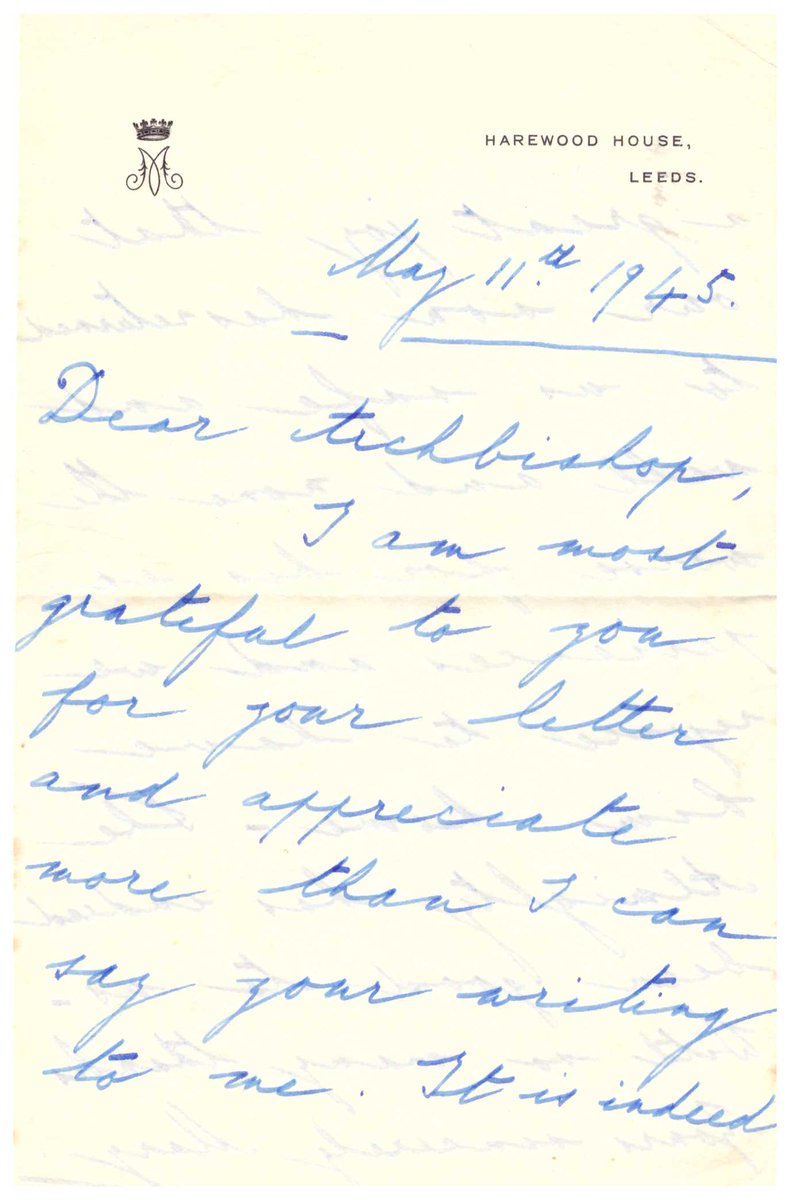 M
HAREWOOD HOUSE,
LEEDS.
May 11.th 1945.
Dear Archbishop,
I am most
grateful to you
for your letter
and appreciate
more than I can
say your writing
to me. It is indeed